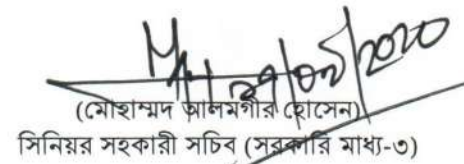 ২৭/০৮/২০২০
(মোহাম্মদ আলমগীর হোসেন)
সিনিয়র সহকারী সচিব (সরকারি মাধ্য-৩)